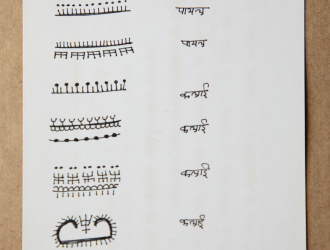 पायल
पायल
कलाई
कलाई
कलाई
कलाई